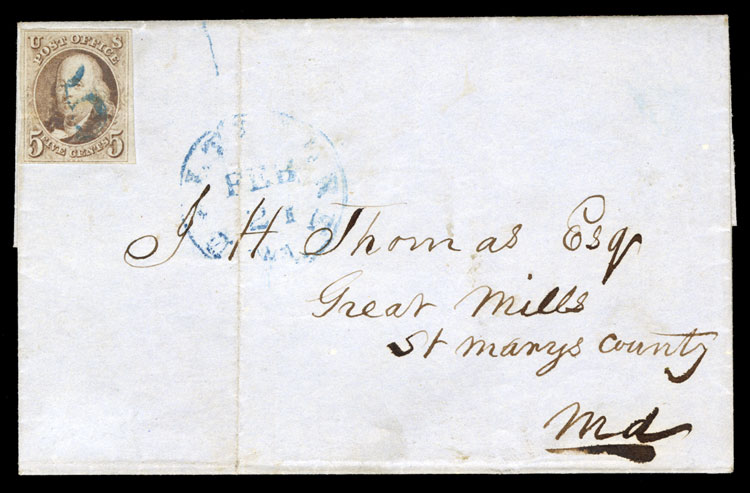 U S
POST OFFICE
5 FIVE CENTS 5
5
FEB
21
J H Thomas Esq
Great Mills
St Marys County
Md